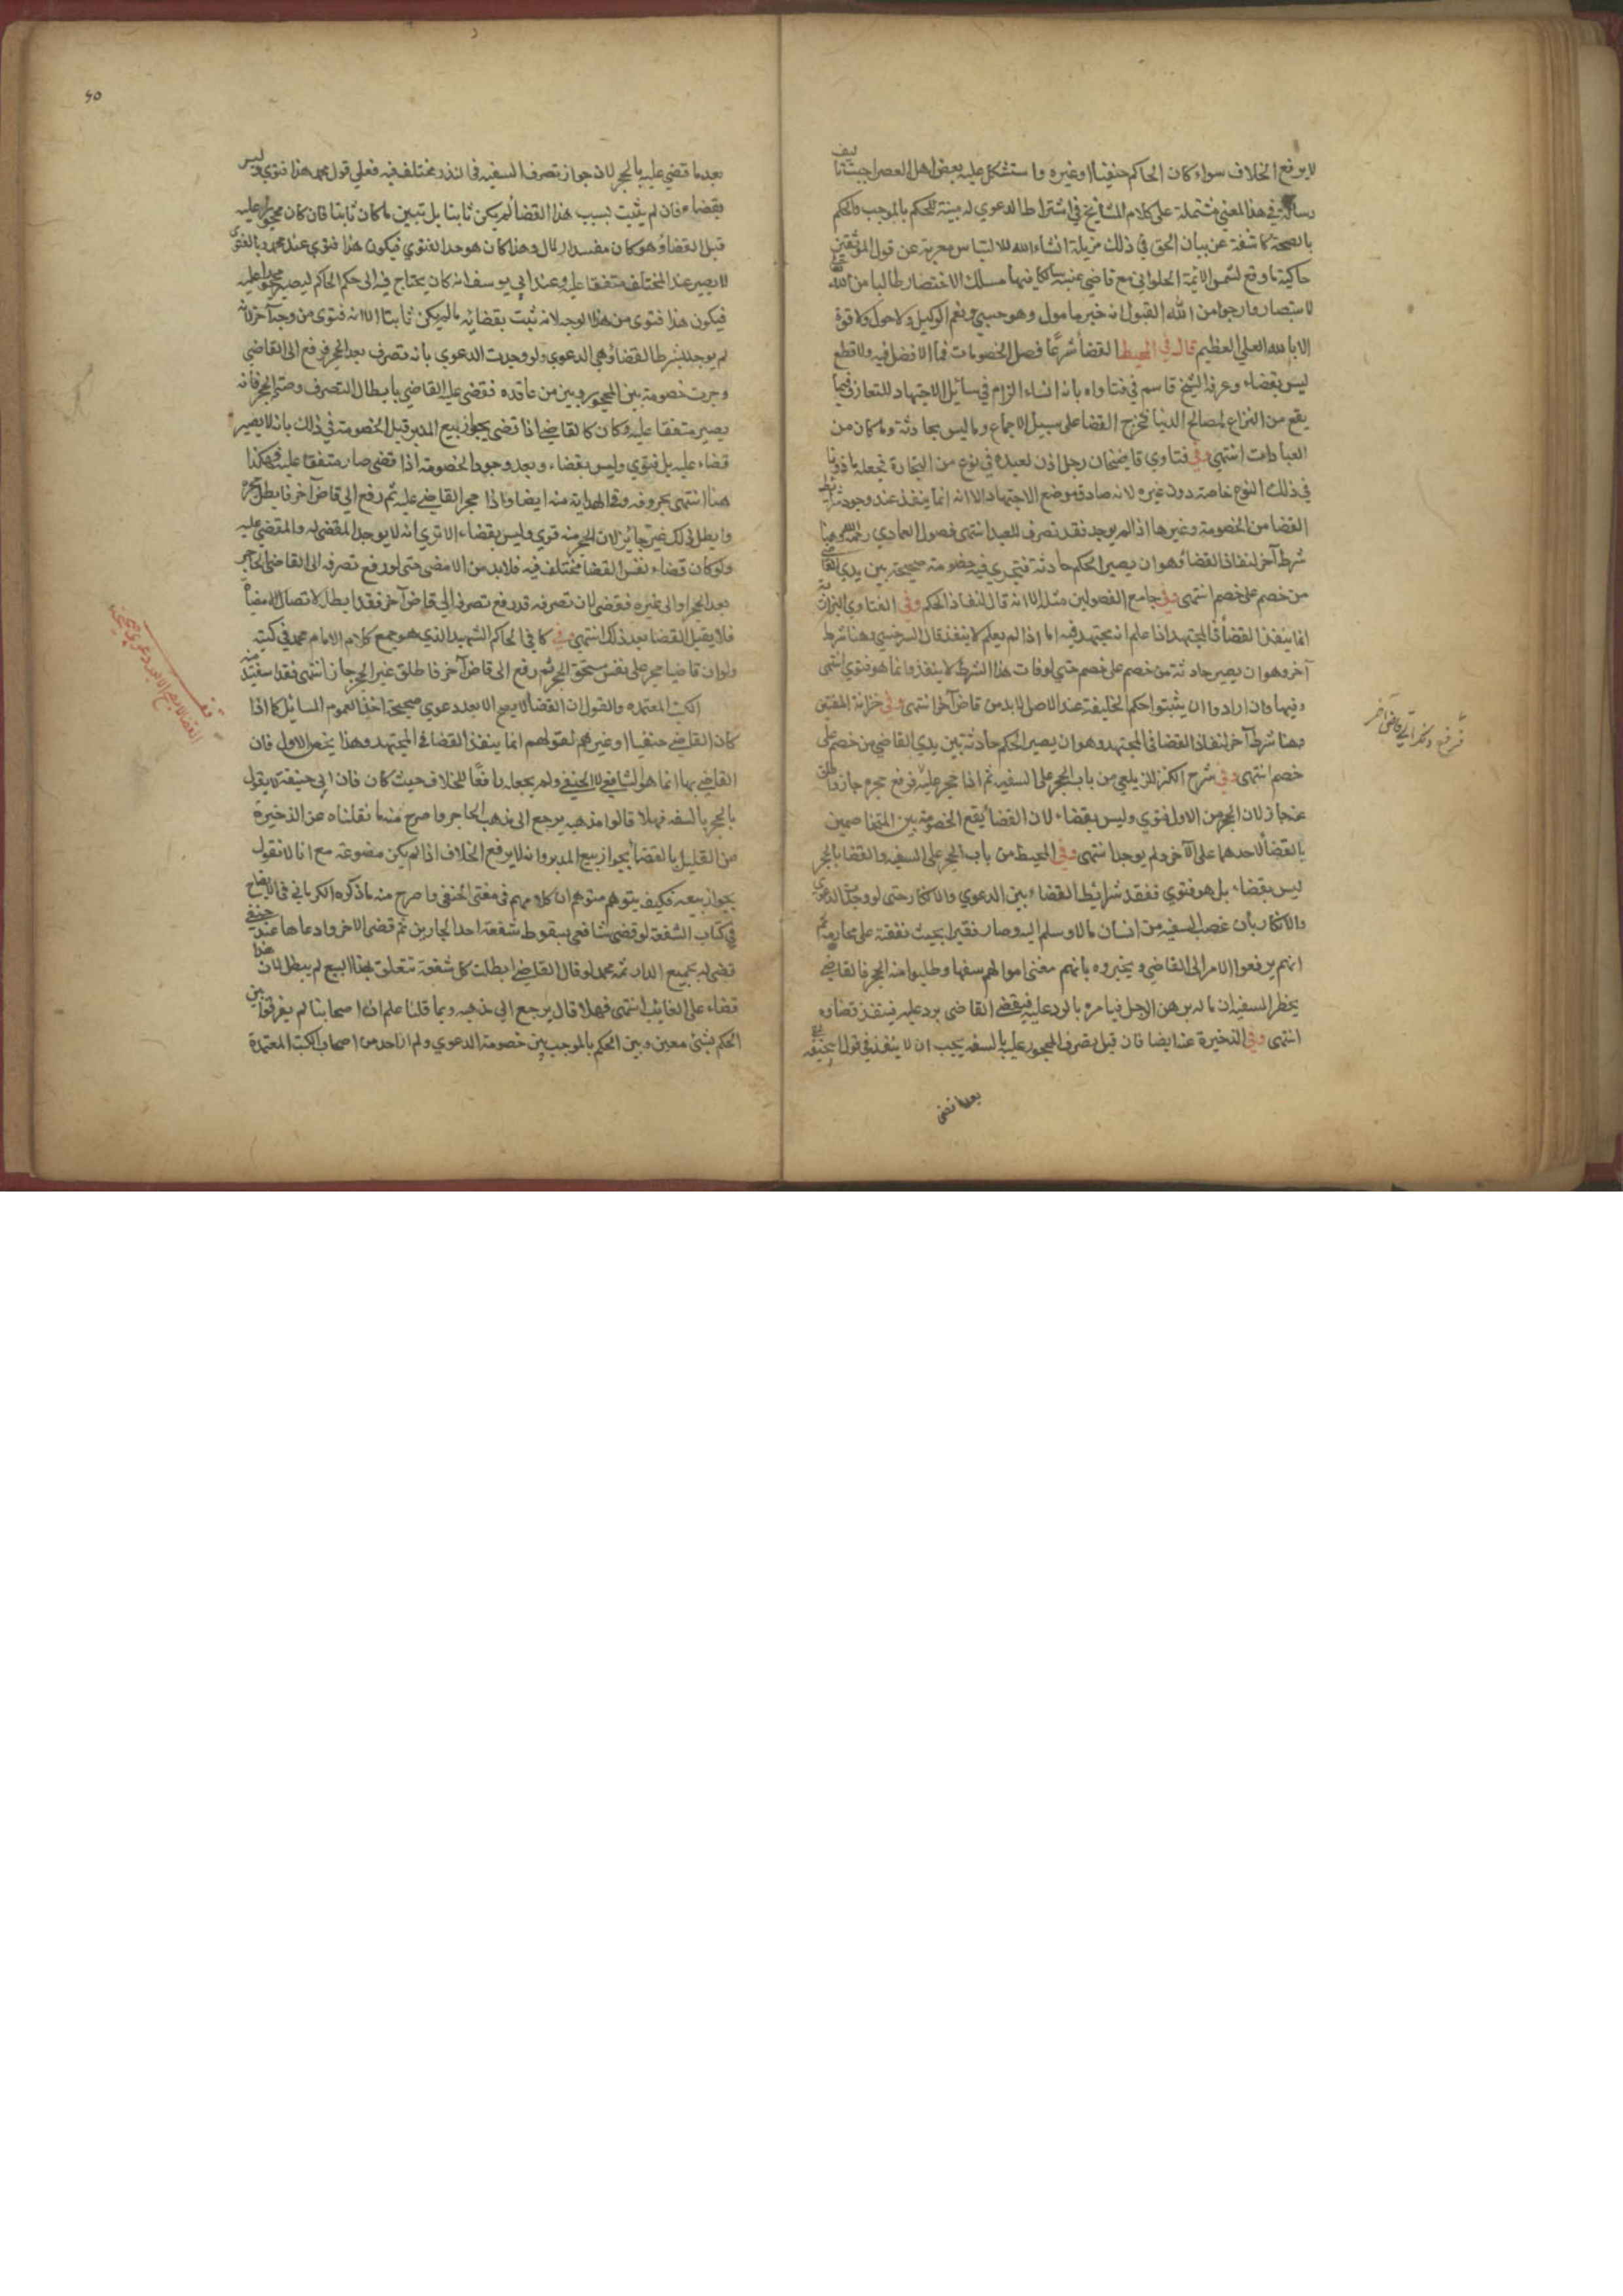 لا يرفع الخلاف سواء كان الحاكم حنفيا او غيره واستشكل عليه بعض اهل العصر احببت تاليف
رسالة في هذا المعني مشتملة على كلام المشايخ في اشتراط الدعوي مبينة للحكم بالموجب والحكم
بالصحة كاشفة عن بيان الحق في ذلك مزيلة انشاء الله للالتباس معربة عن قول الموثقين
حاكية ما وقع لشمس الائمة الحلواني مع قاضي عنبسة سالكا فيها مسلك الاختصار طالبا من الله
الاستبصار وارجوا من الله القبول انه خير مامول وهو حسبي ونعم الوكيل ولا حول ولا قوة
الا بالله العلي العظيم قال في المحيط القضأ شرعا فصل الخصومات فما لا فصل فيه ولا قطع
ليس بقضاء وعرفه الشيخ قاسم في فتاواه بانه انشاء الزام في مسائل الاجتهاد للتعارف فيما
يقع من النزاع لمصالح الدنيا فخرج القضا على سبيل الاجماع وما ليس بحادثة وما كان من
العبادات انتهى وفي فتاوي قاضيخان رجل اذن لعبده في نوع من التجارة فجعله ماذونا
في ذلك النوع خاصة دون غيره لانه صادق موضع الاجتهاد الا انه انما ينفذ عند وجود شرائط
القضا من الخصومة وغيرها اذا لم يوجد فقد تصرف للعبد انتهى فصول العمادي رحمه الله وهنا
شرط آخر لنفاذ القضأ وهو ان يصير الحكم حادثة فتجري فيه خصومة صحيحة بين يدي القاضي
من خصم على خصم انتهى وفي جامع الفصولين مثله الا انه قال لنفاذ الحكم وفي الفتاوي البزازية
انما ينفذ القضأ في المجتهد اذا علم انه مجتهد فيه اما اذا لم يعلم لا ينفذ قال السرخسي وهنا شرط
آخر وهو ان يصير حادثة من خصم على خصم حتي لو فات هذا الشرط لا ينفذ وانما هو فتوي انتهى
وفيها وان ارادوا ان يثبتوا حكم الخليفة عند الاصل لابد من قاض آخر انتهى وفي خزانة المفتين
وهنا شرط آخر لنفاذ القضا في المجتهد وهو ان يصير الحكم حادثة بين يدي القاضي من خصم على
خصم انتهى وفي شرح الكنز للزيلعي من باب الحجر على السفيه ثم اذا حجر عليه فرفع حجره جاز واطلق
عنه جاز لان الحجر من الاول فتوي وليس بقضاء لان القضأ يقع الخصومة بين المتخاصمين
بالقضأ لاحدهما على الآخر ولم يوجد انتهى وفي المحيط من باب الحجر على السفيه والقضا بالحجر
ليس بقضاء بل هو فتوي ففقد شرائط القضاء بين الدعوي والانكار حتى لو وجدت الدعوي
والانكار بأن غصب السفيه من انسان مالا وسلم اليه وصار فقيرا بحيث نفقته على محارمه ثم
انهم يرفعوا الامر الى القاضي ويخبروه بانهم مغني اموالهم سفها وطلبوا منه الحجر فالقاضي
يحظر السفيه ان ماله برهن الرجل فيامره بالرد عليه فيقضي القاضي برد عليه فينفذ قضاوه
انتهى وفي الذخيرة عند ايضا فان قبل تصرف المحجور عليه بالسفه يجب ان لا ينفذ في قول ابي حنيفة
بعدما قضى
فرفع ذلك الى قاض آخر
بعدما قضي عليه بالحجر لان جواز تصرف السفيه في النذر مختلف فيه فعلي قول محمد هذا فتوي وليس
بقضاء فان لم يثبت بسبب هذا القضأ لم يكن ثابتا بل تبين ما كان ثابتا فان كان محجورا عليه
قبل القضأ وهو كان مفسدا لمال وهذا كان هو حد الفتوي فيكون هذا فتوي عند محمد وبالفتوى
لا يصير عند المختلف متفقا عليه وعند ابي يوسف انه كان يحتاج فيه الى حكم الحاكم ليصير محجورا عليه
فيكون هذا فتوى من هذا الوجه لانه ثبت بقضائه ما لم يكن ثابتا الا انه فتوى من وجه آخر لانه
لم يوجد شرط القضأ وهي الدعوي ولو وجدت الدعوي بانه تصرف بعد الحجر فرفع الى القاضي
وجرت خصومة بين المحجور وبين من عاقده فقضى عليه القاضي بابطال التصرف وصحة الحجر فانه
يصير متفقا عليه وكان كالقاضي اذا قضى بجواز بيع المدبر قبل الخصومة في ذلك بانه لا يصير
قضاء عليه بل فتوي وليس بقضاء وبعد وجود الخصومة اذا قضى صار متفقا عليه فهكذا
هنا انتهى بحروفه وفي الهداية منه ايضا واذا حجر القاضي عليه ثم رفع الى قاض آخر فابطل حجره
وابطل ذلك غير جائز لان الحجر منه فتوي وليس بقضاء الا تري انه لا يوجد المقضي له والمقضي عليه
ولو كان قضاء نفس القضا مختلف فيه فلابد من الامضى حتى لو رفع تصرفه الى القاضى الحاجر
بعد الحجر او الى غيره فقضى لان تصرفه قد رفع تصرفه الى قاض آخر فقد ابطل لاتصال الامضأ
فلا يقبل القضا بعد ذلك انتهى وفي كافي الحاكم الشهيد الذي هو جمع كلام الامام محمد في كتبه
ولو ان قاضيا حجر على نفس يستحق الحجر ثم رفع الى قاض آخر فاطلق عنه الحجر جاز انتهى فقد استفيد منه
الكتب المعتمده والقول ان القضأ لا يصح الا بعد دعوي صحيحة اخذا لعموم المسائل كما اذا
كان القاضي حنفيا او غيرهم لقولهم انما ينفذ القضا في المجتهد وهذا يخص الاول فان
القاضي بها انما هو الشافعي لا الحنفي ولم يجعله رافعا للخلاف حيث كان فان ابي حنيفة لا يقول
بالحجر بالسفه فهلا قالوا مذهبه يرجع الى مذهب الحاجر واصرح منه ما نقلناه عن الذخيرة
من القليل بالقضا بجواز بيع المدبر وانه لا يرفع الخلاف اذا لم يكن مضوعة مع انا لا نقول
بجواز بيعه فكيف يتوهم متوهم ان كلامهم في مفتي الحنفي واصرح منه ما ذكره الكرماني في الايضاح
في كتاب الشفعة لو قضى شافعي بسقوط شفعة احد الجارين ثم قضى الاخر وادعاها عند حنفي
قضى له بجميع الدار ثمه محمد لو قال القاضي ابطلت كل شفعة تتعلق بهذا البيع لم يبطل لان هذا
قضاء على الغائب انتهى فهلا قال يرجع الى مذهبه وبما قلنا علم ان اصحابنا لم يفرقوا بين
الحكم بشئ معين وبين الحكم بالموجب بين خصومة الدعوي ولم ار احد من اصحاب الكتب المعتمدة
القضا لا يصح الا بعد دعوي صحيحة